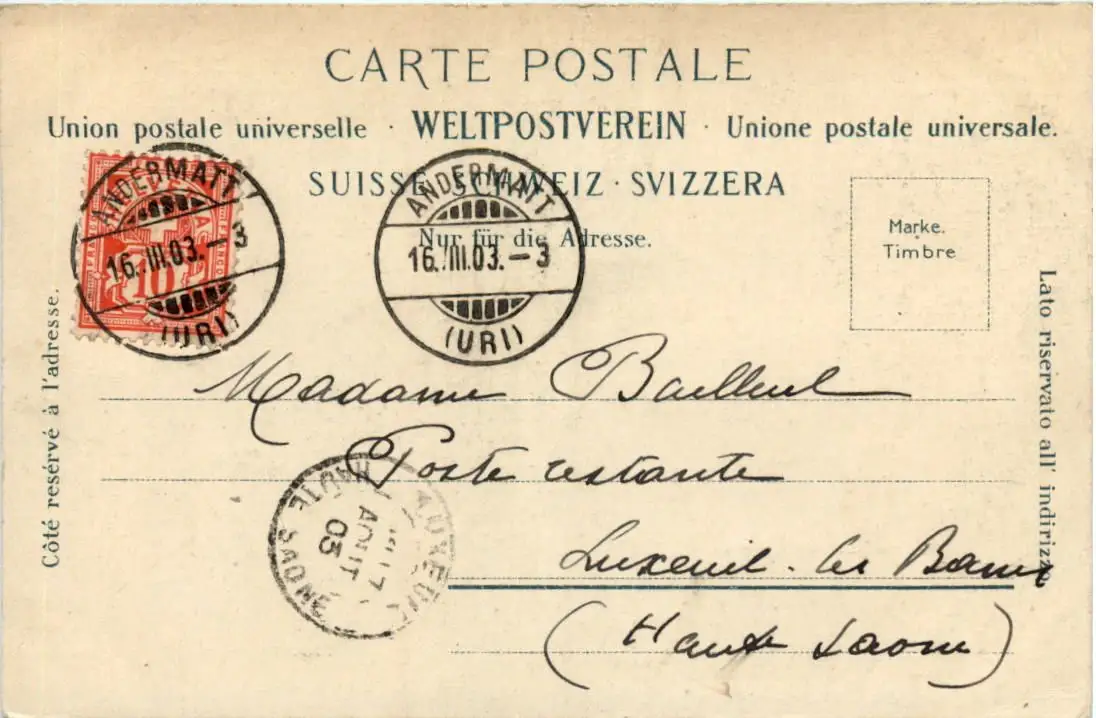 CARTE POSTALE
Union postale universelle · WELTPOSTVEREIN · Unione postale universale.
SUISSE · SCHWEIZ · SVIZZERA
Nur für die Adresse.
Marke.
Timbre
ANDERMATT
16.III.03.–3
(URI)
FRANCO
10
ANDERMATT
16.III.03.–3
(URI)
Côté resérvé à l'adresse.
Lato riservato all' indirizzo
Madame Bailleul
Poste restante
Luxeuil-les Bains
(Haute Saone)
LUXEUIL
17
AOUT
03
HAUTE SAONE